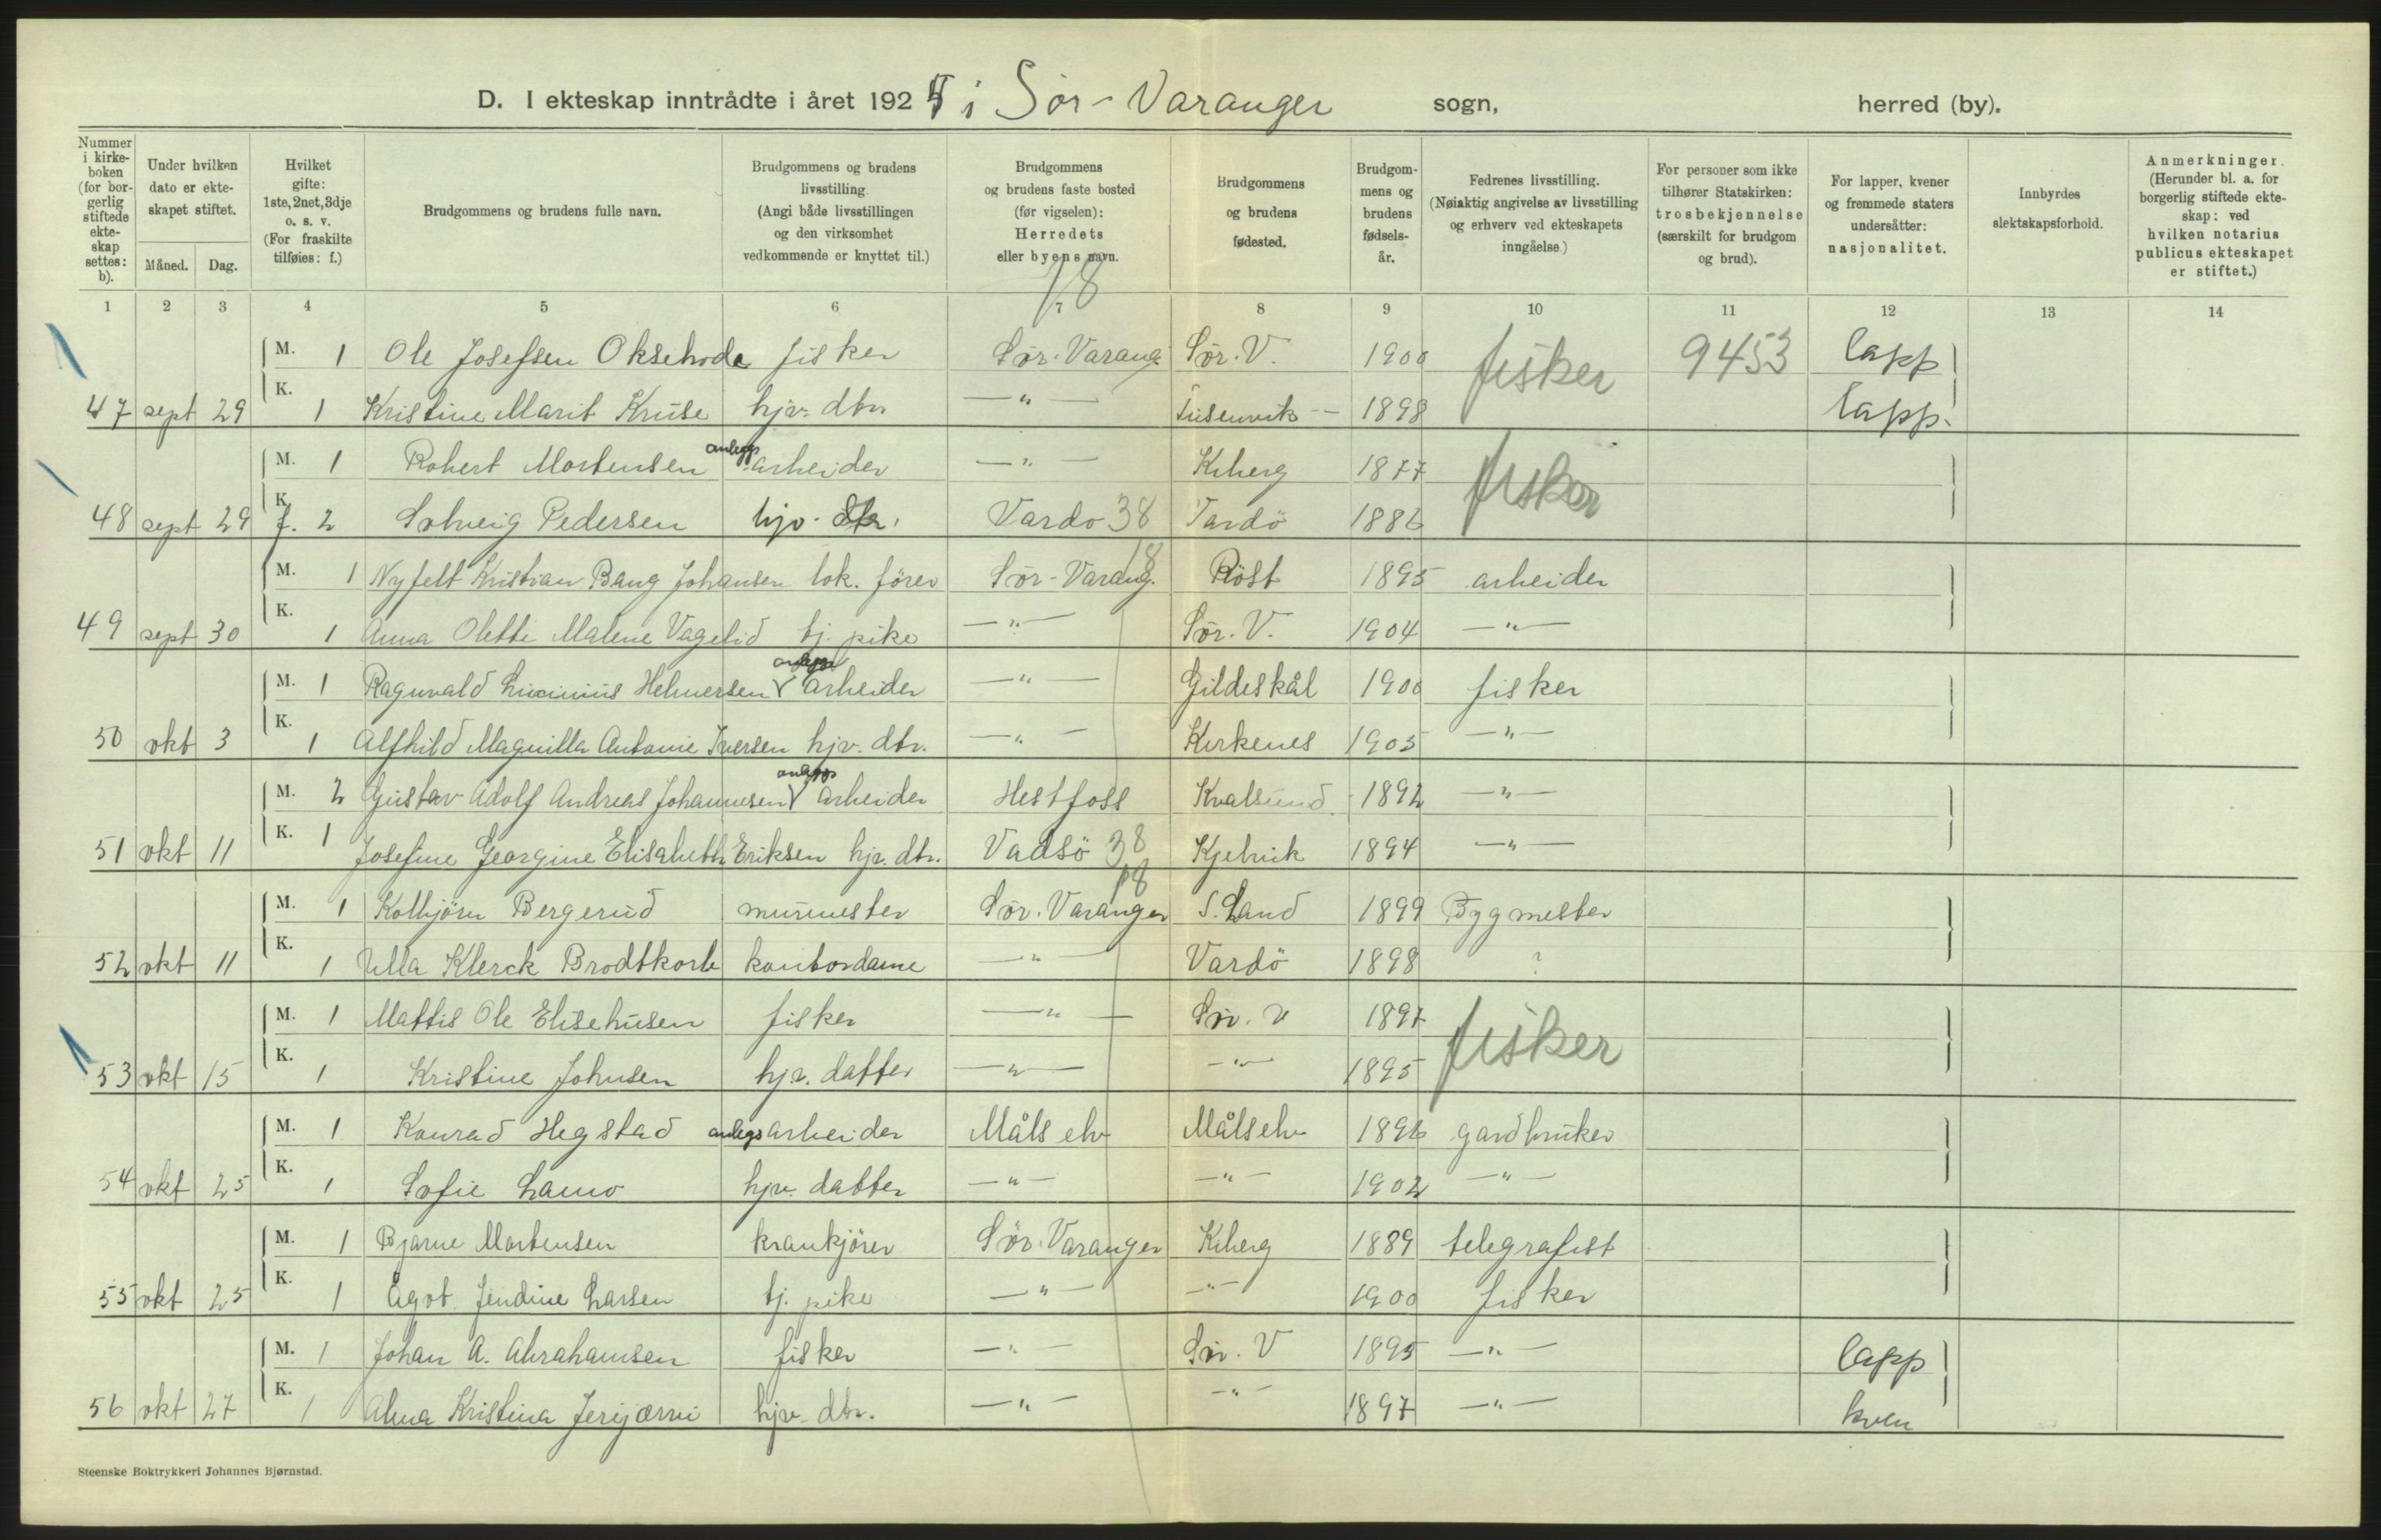 D. I ekteskap inntrådte i året 1925 i Sör-Varanger sogn, herred (by).
Nummer i kirke-boken (for bor-gerlig stiftede ekte-skap settes: b).
Under hvilken dato er ekte-skapet stiftet.
Måned. Dag.
Hvilket gifte: 1ste, 2net, 3dje o. s. v. (For fraskilte tilføies: f.)
Brudgommens og brudens fulle navn.
Brudgommens og brudens livsstilling (Angi både livsstillingen og den virksomhet vedkommende er knyttet til.)
Brudgommens og brudens faste bosted (før vigselen): Herredets eller byens navn.
Brudgommens og brudens fødested.
Brudgom-mens og brudens fødsels-år.
Fedrenes livsstilling. (Nøiaktig angivelse av livsstilling og erhverv ved ekteskapets inngåelse.)
For personer som ikke tilhører Statskirken: trosbekjennelse (særskilt for brudgom og brud).
For lapper, kvener og fremmede staters undersåtter: nasjonalitet.
Innbyrdes slektskapsforhold.
Anmerkninger. (Herunder bl. a. for borgerlig stiftede ekte-skap: ved hvilken notarius publicus ekteskapet er stiftet.)
1 2 3 4 5 6 7 8 9 10 11 12 13 14
18
M. 1 Ole Josefsen Oksehode fisker Sör. Varang. Sör. V. 1900 fisker 9453 lapp
47 sept 29 K. 1 Kristine Marit Kruse hjv. dtr. —"— 1898 lapp.
M. 1 Robert Mortensen anlegs arbeider —"— Kiberg 1877 fisker
48 sept 29 K. f. 2 Solveig Pedersen hjv. dtr. Vardö 38 Vardö 1886
M. 1 Nyfelt Kristian Bang Johansen lok. förer Sör-Varang. 18 Röst 1895 arbeider
49 sept 30 K. 1 Anna Olette Malene Vagelid tj. pike —"— Sör. V. 1904 —"—
M. 1 Ragnvald Helmersen anlegs arbeider —"— Gildeskål 1900 fisker
50 okt 3 K. 1 Alfhild Magnilla Antonie Iversen hjv. dtr. —"— Kirkenes 1905 —"—
M. 2 Gustav Adolf Andreas Johannesen anlegs arbeider Hestfoss Kvalsund 1892 —"—
51 okt 11 K. 1 Josefine Georgine Elisabeth Eriksen hjv. dtr. Vadsö 38 Kjelvik 1894 —"—
M. 1 Kolbjörn Bergerud murmester Sör. Varanger 18 S. Land 1899 Bygmester
52 okt 11 K. 1 Ulla Klerck Brodtkorb kontordame —"— Vardö 1898 ?
M. 1 Mattis Ole Elisehusen fisker —"— Sör. V 1897 fisker
53 okt 15 K. 1 Kristine Johnsen hjv. datter —"— —"— 1895
M. 1 Konrad Hegstad anlegs arbeider Målselv Målselv 1896 gardbruker
54 okt 25 K. 1 Sofie Lamo hjv. datter —"— —"— 1902 —"—
M. 1 Bjarne Mortensen krankjörer Sör. Varanger Kiberg 1889 telegrafist
55 okt 25 K. 1 Jendine Larsen tj. pike —"— —"— 1900 fisker
M. 1 Johan A. Abrahamsen fisker —"— Sör. V 1895 —"— lapp
56 okt 27 K. 1 Alma Kristina Jerijærvi hjv. dtr. —"— —"— 1897 —"— kven
Steenske Boktrykkeri Johannes Bjørnstad.